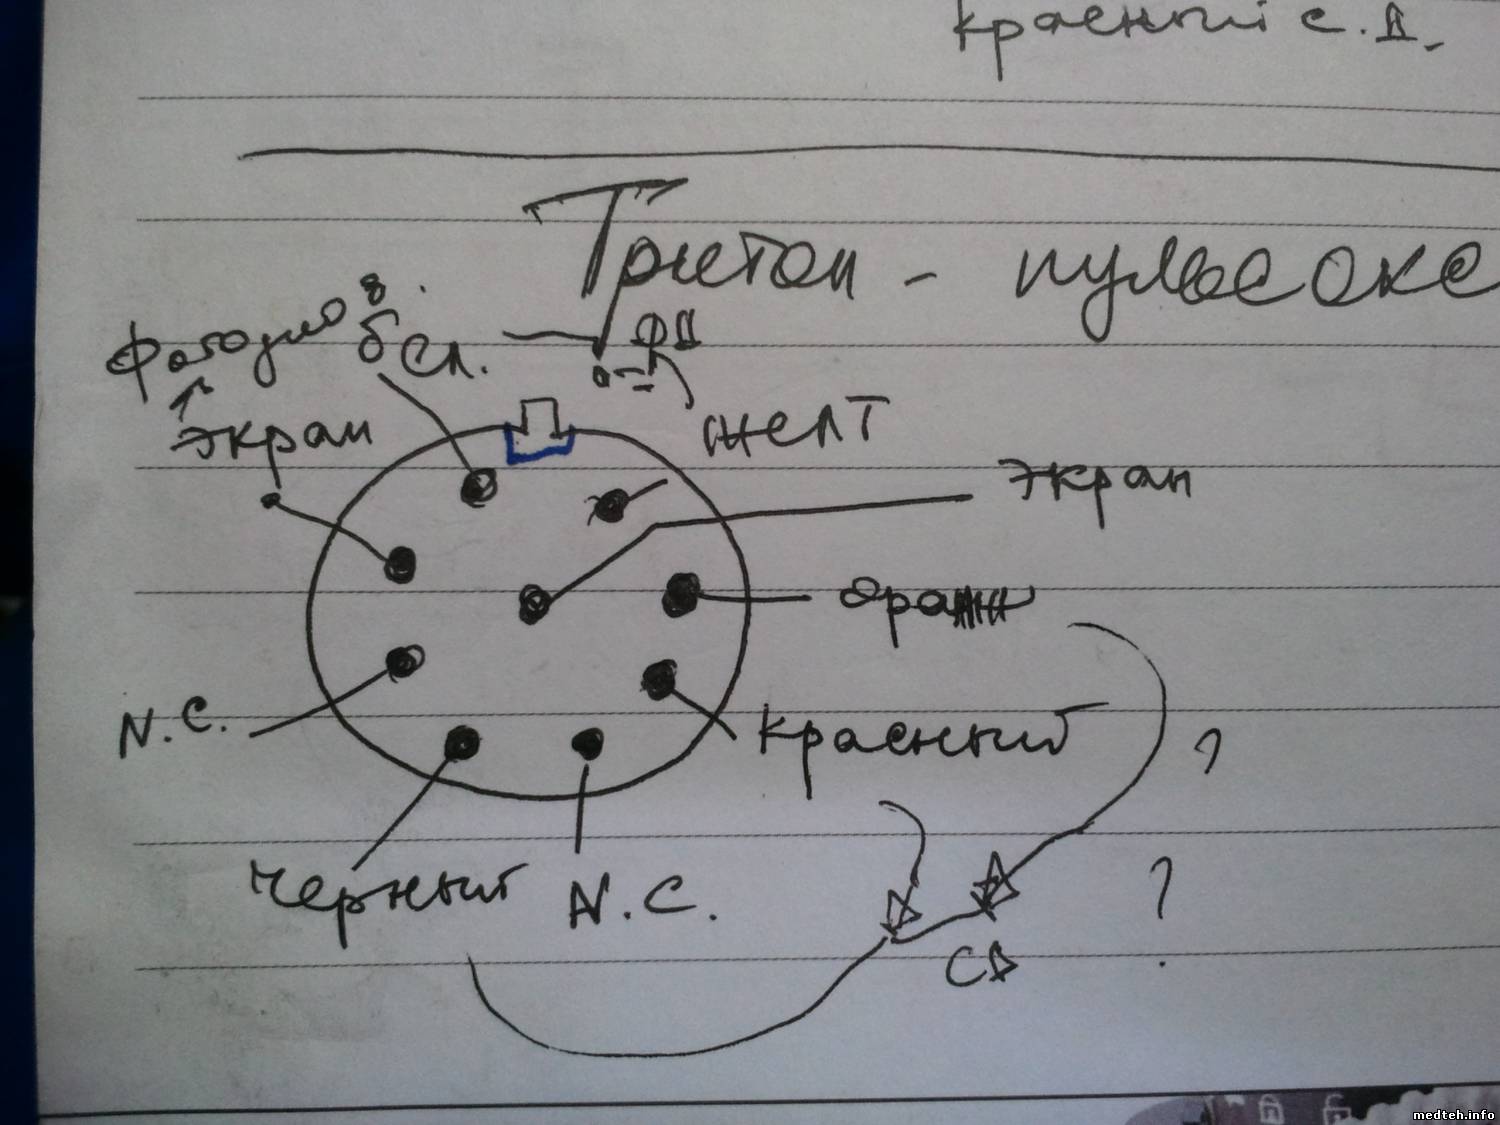 красный с.д.
Тритон - пульсокс
ФД
бел.
желт
экран
экран
оранж
N.C.
красный
?
черный N.C.
?
СД
medteh.info